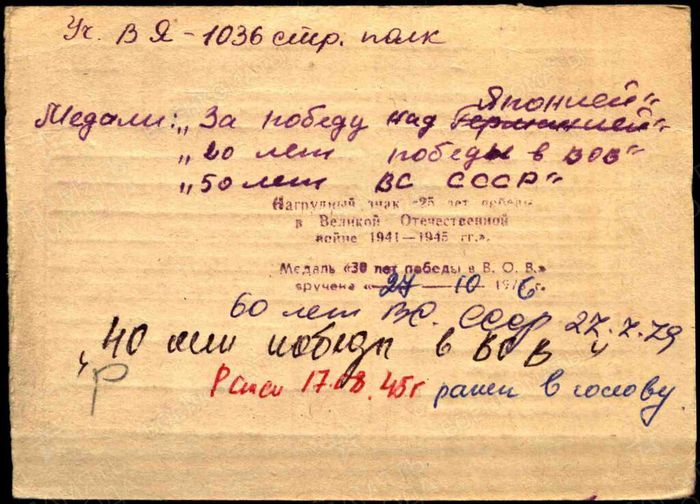 Уч. В Я - 1036 стр. полк
Японией"
Медали: „За победу над Германией"
„20 лет победы в ВОВ"
„50 лет ВС СССР"
Нагрудный знак «25 лет победы
в Великой Отечественной
войне 1941—1945 гг.».
Медаль «30 лет победы в В. О. В.»
вручена «27—10 1976 г.
60 лет ВС. СССР 27.X.79
„40 лет победы в ВОВ"
Р
Ранен 17.08.45г ранен в голову.